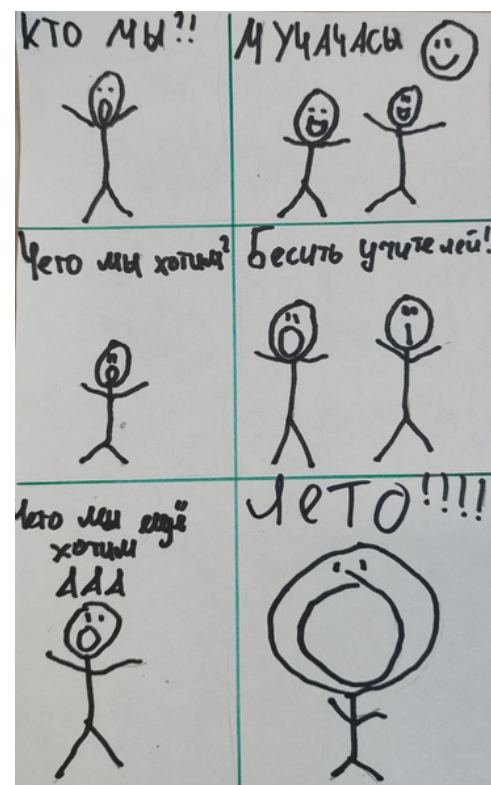 КТО МЫ?!
МУЧАЧАСЫ
Чего мы хотим?
Бесить учителей!
Чего мы ещё
хотим
ААА
ЛеТО!!!!